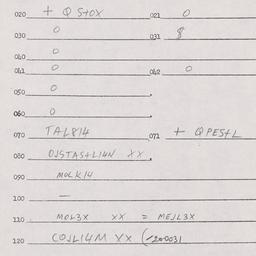 020 + Q STOX 021 0
030 0 031 8
040 0
041 0 042 0
050 0
060 0
070 TAL814 071 + QPESTL
080 XX
090 MOLK14
100 —
110 MOL3X XX = MEJL3X
120 XX